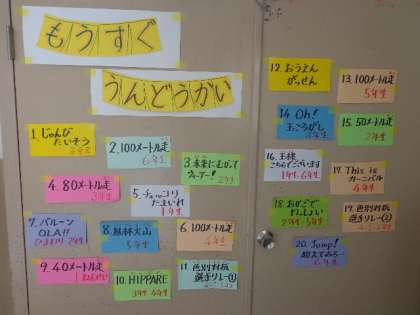 もうすぐ
うんどうかい
1.じゅんび
たいそう
2.100メートル走
6年生
3.未来にむかって
4.80メートル走
3年生
5.チェッコリ
たまいれ
1年生
6.100メートル走
4年生
7.バルーン
OLA!!
8.風林火山
5年生
9.40メートル走
10.HIPPARE
3年生 4年生
11.色別対抗
選手リレー①
12.おうえん
がっせん
13.100メートル走
5年生
14.Oh!
玉ころがし
15.50メートル走
2年生
16.王様
こちらでございます
1年生 6年生
17.This is
カーニバル
4年生
18.おかごで
19.色別対抗
選手リレー②
20.Jump!
6年生